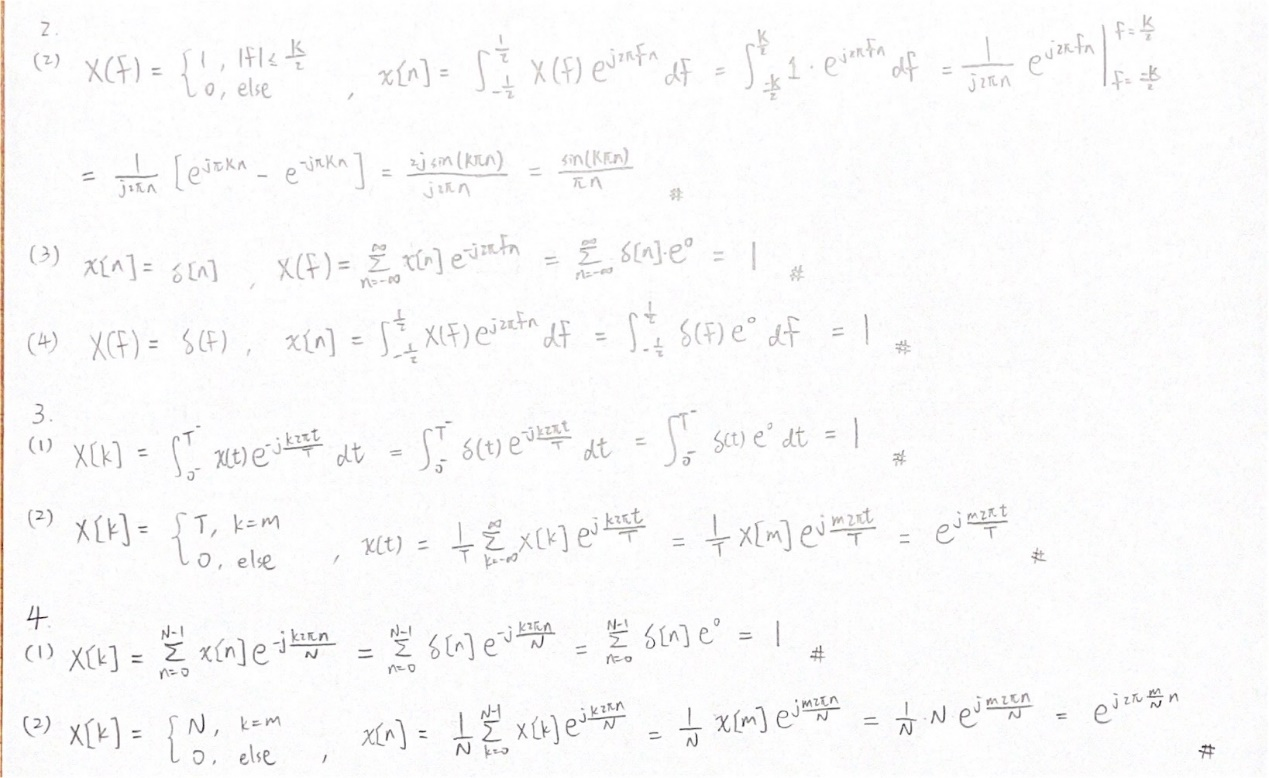 2.
(2) X(f) = { 1, |f| ≤ K/2 ; 0, else , x[n] = ∫_{-1/2}^{1/2} X(f) e^{j2πfn} df = ∫_{-K/2}^{K/2} 1 · e^{j2πfn} df = 1/(j2πn) e^{j2πfn} |_{f=-K/2}^{f=K/2}
= 1/(j2πn) [e^{jπKn} - e^{-jπKn}] = 2j sin(Kπn)/(j2πn) = sin(Kπn)/(πn) #
(3) x[n] = δ[n] , X(f) = Σ_{n=-∞}^{∞} x[n] e^{-j2πfn} = Σ_{n=-∞}^{∞} δ[n]·e^0 = 1 #
(4) X(f) = δ(f) , x[n] = ∫_{-1/2}^{1/2} X(f) e^{j2πfn} df = ∫_{-1/2}^{1/2} δ(f) e^0 df = 1 #
3.
(1) X[k] = ∫_{0^-}^{T^-} x(t) e^{-j k2πt/T} dt = ∫_{0^-}^{T^-} δ(t) e^{-j k2πt/T} dt = ∫_{0^-}^{T^-} δ(t) e^0 dt = 1 #
(2) X[k] = { T, k=m ; 0, else , x(t) = 1/T Σ_{k=-∞}^{∞} X[k] e^{j k2πt/T} = 1/T X[m] e^{j m2πt/T} = e^{j m2πt/T} #
4.
(1) X[k] = Σ_{n=0}^{N-1} x[n] e^{-j k2πn/N} = Σ_{n=0}^{N-1} δ[n] e^{-j k2πn/N} = Σ_{n=0}^{N-1} δ[n] e^0 = 1 #
(2) X[k] = { N, k=m ; 0, else , x[n] = 1/N Σ_{k=0}^{N-1} X[k] e^{j k2πn/N} = 1/N X[m] e^{j m2πn/N} = 1/N · N e^{j m2πn/N} = e^{j2π m/N n} #